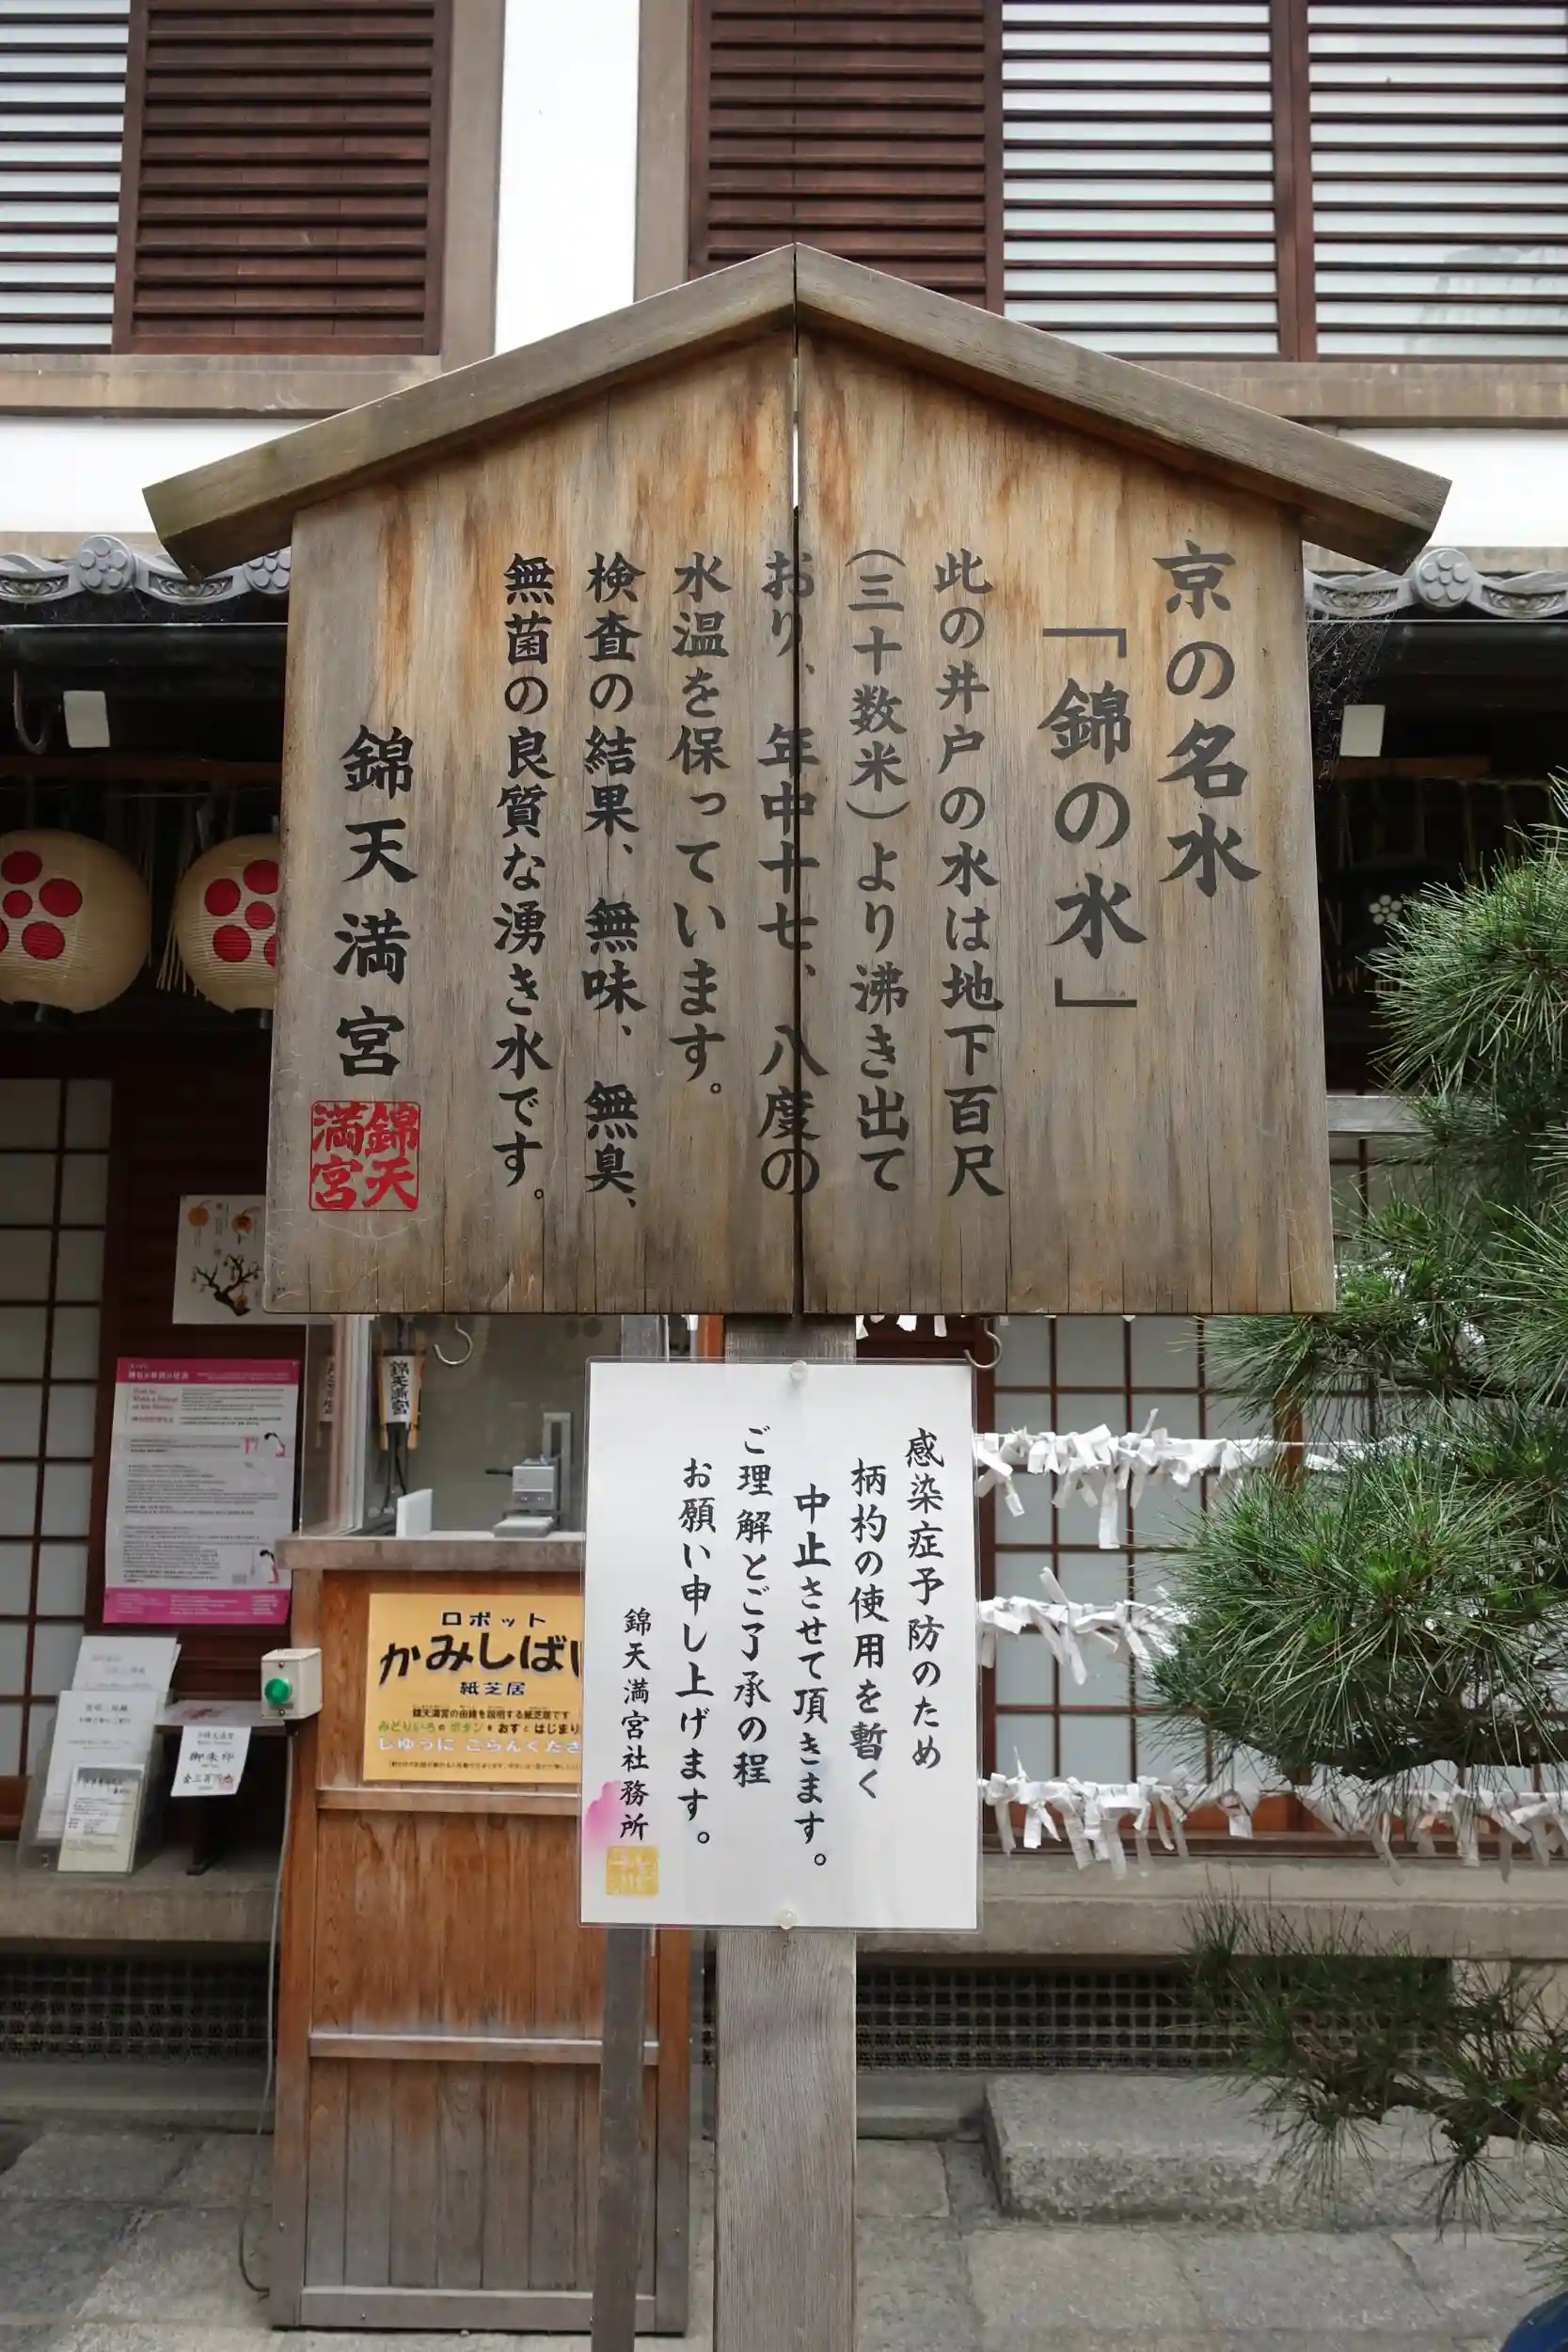 京の名水
「錦の水」
此の井戸の水は地下百尺
（三十数米）より沸き出て
おり、年中十七、八度の
水温を保っています。
検査の結果、無味、無臭、
無菌の良質な湧き水です。
錦天満宮
錦天
満宮
感染症予防のため
柄杓の使用を暫く
中止させて頂きます。
ご理解とご了承の程
お願い申し上げます。
錦天満宮社務所
錦天満宮
ロボット
かみしばい
紙芝居
錦天満宮の由緒を説明する紙芝居です
みどりいろのボタンをおすとはじまり
しゆうに ごらんくださ
御朱印
金三百円也